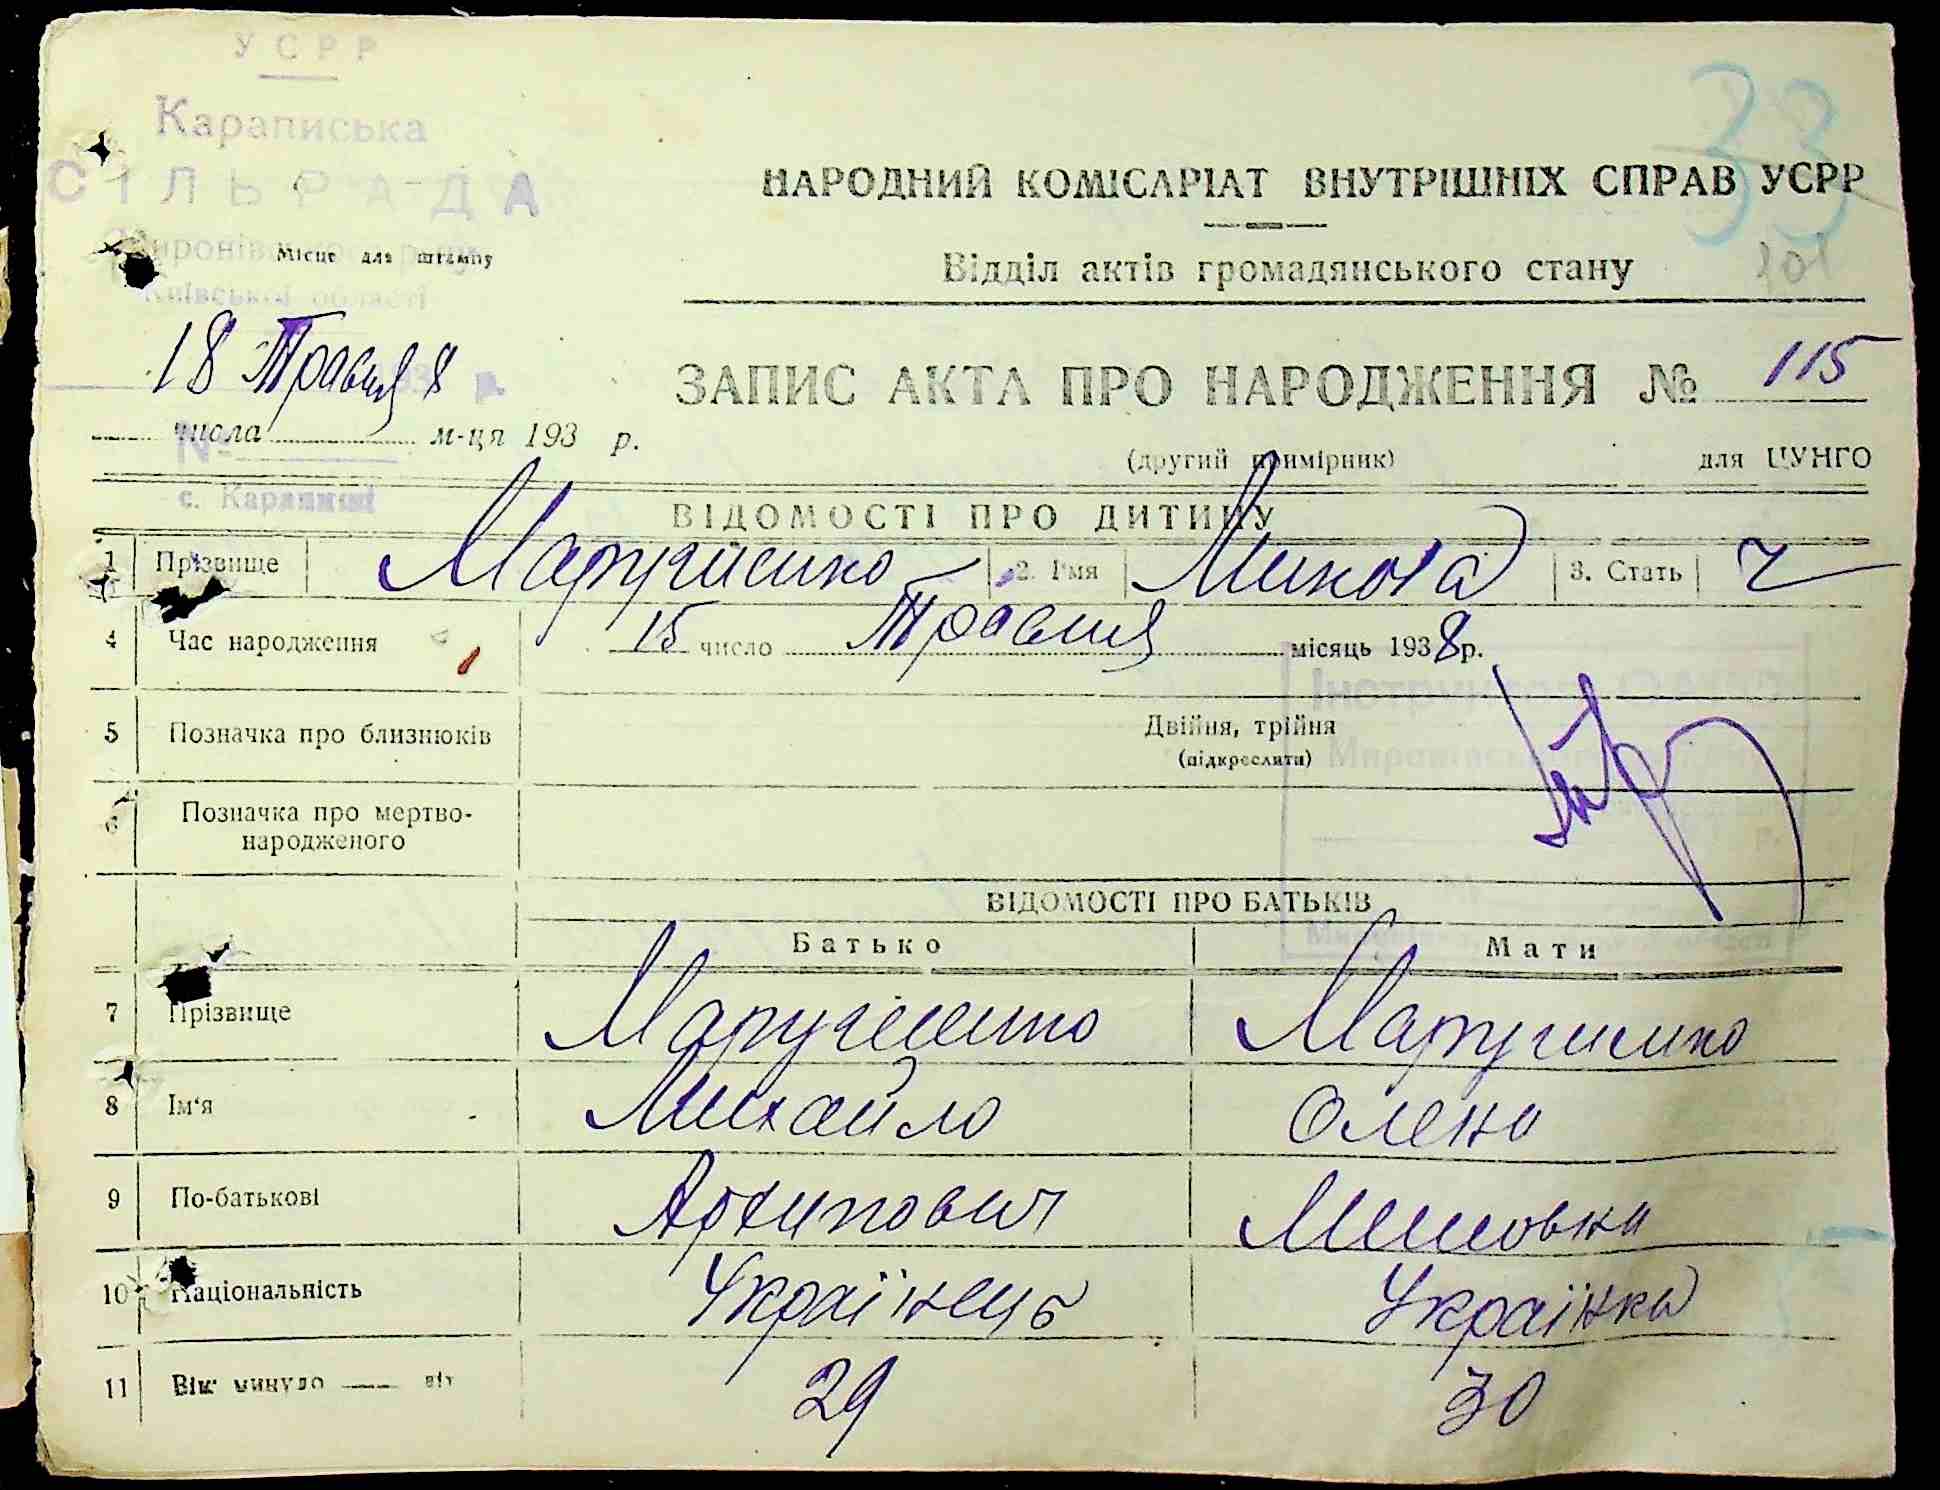 УСРР
Караписька
СІЛЬРАДА
Миронівського р-ну
Київської області
Місце для штампу
33
101
НАРОДНИЙ КОМІСАРІАТ ВНУТРІШНІХ СПРАВ УСРР
Відділ актів громадянського стану
18 Травня 8
числа м-ця 193 р.
№
с. Карапиші
ЗАПИС АКТА ПРО НАРОДЖЕННЯ № 115
(другий примірник) для ЦУНГО
ВІДОМОСТІ ПРО ДИТИНУ
1 Прізвище 2. Ім'я Микола 3. Стать ч
4 Час народження 15 число Травня місяць 1938 р.
5 Позначка про близнюків Двійня, трійня
(підкреслити)
6 Позначка про мертво-
народженого
ВІДОМОСТІ ПРО БАТЬКІВ
Батько Мати
7 Прізвище
8 Ім'я Михайло Олена
9 По-батькові Архипович
10 Національність Українець Українка
11 Вік минуло літ 29 30